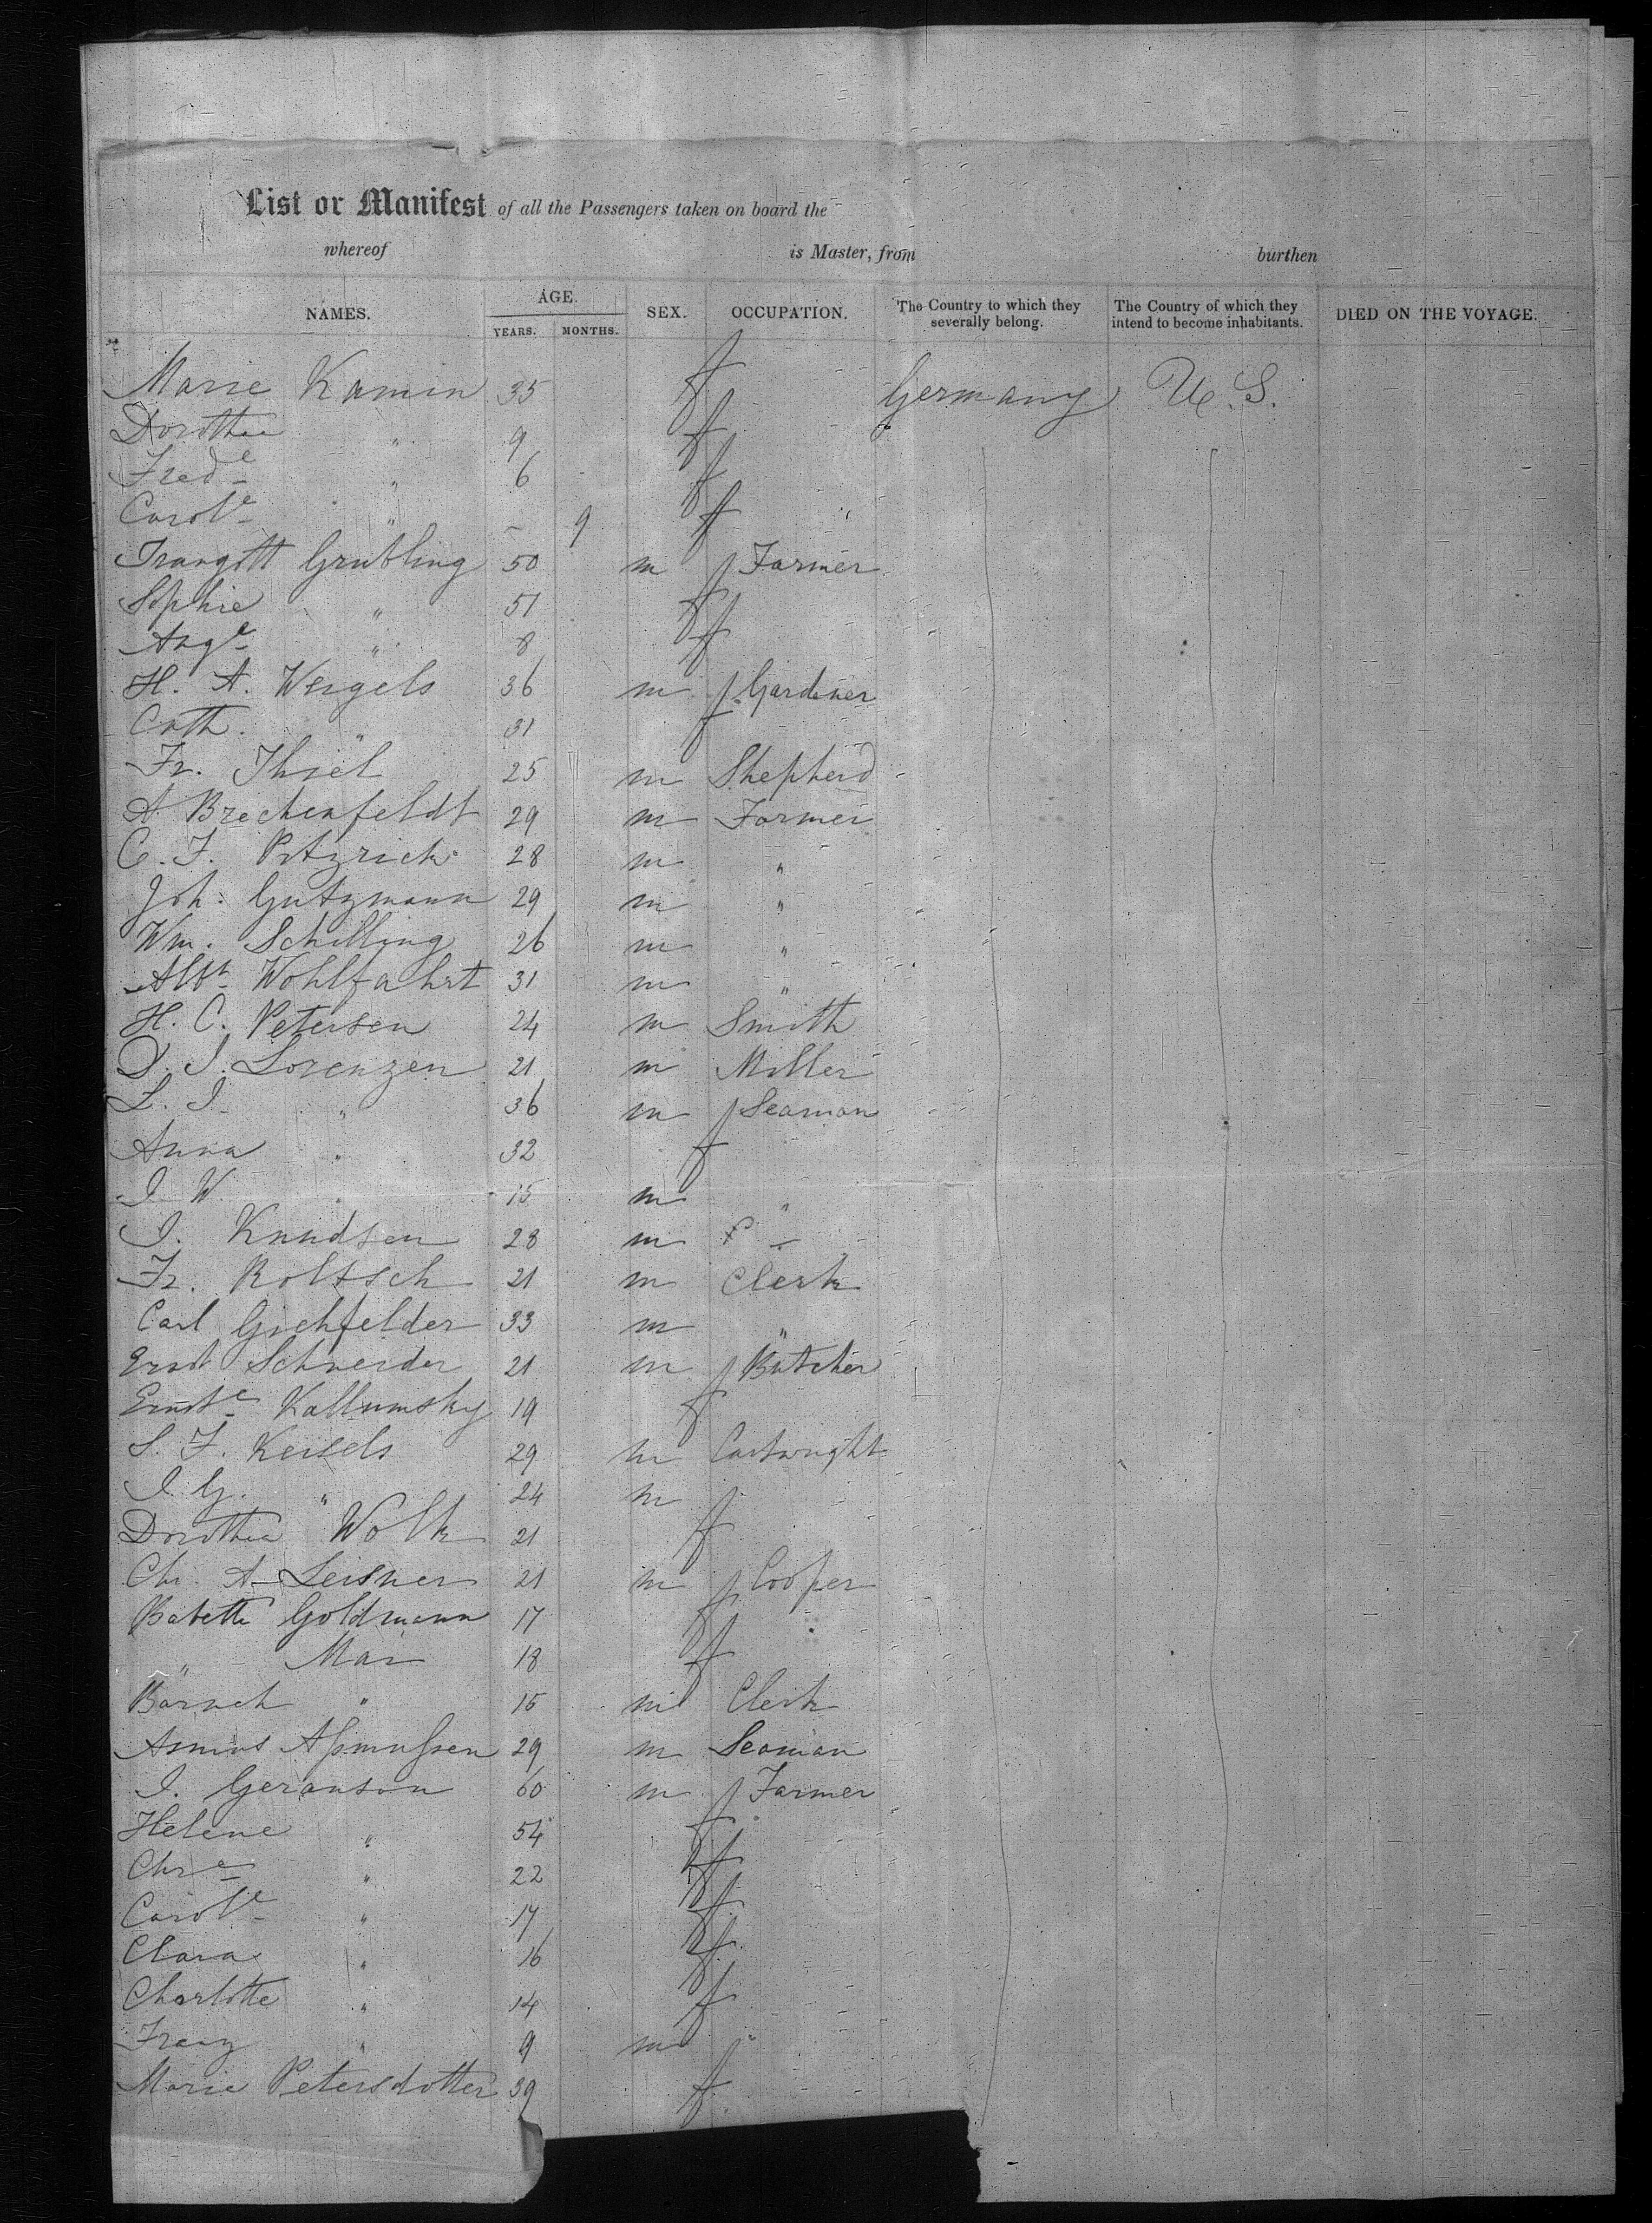 List or Manifest of all the Passengers taken on board the
whereof is Master, from burthen
NAMES. AGE. YEARS. MONTHS. SEX. OCCUPATION. The Country to which they severally belong. The Country of which they intend to become inhabitants. DIED ON THE VOYAGE.
Marie Kamin 35 f Germany U.S.
Dorothea " 9 f
Frede " 6 f
Carole " - 9 f
Traugott Grubling 50 m Farmer
Sophie " 51 f
Auge " 8 f
H. A. Weigels 36 m Gardener
Cath. " 31 f
Fr. Thiel 25 m Shepherd
A. Brechenfeldt 29 m Farmer
C. F. Potzrick 28 m "
Joh. Gutzmann 29 m "
Wm. Schilling 26 m "
Albt Wohlfahrt 31 m "
H. C. Petersen 24 m Smith
J. Lorenzen 21 m Miller
L. I. " 36 m Seaman
Anna " 32 f
I W " 15 m "
I. Knudsen 28 m "
Fr. Roltsch 21 m Clerk
Carl Gichfelder 33 m "
Ernst Schneider 21 m Butcher
Ernste Kallumsky 19 f
S. F. Keisels 29 m Cartwright
I G. " 24 m
Dorothea Wolk 21 f
Chr. A. Leisner 21 m Cooper
Babette Goldmann 17 f
" Mai 18 f
Baruch " 15 m Clerk
Asmus Aſsmuſsen 29 m Seaman
I. Geranson 60 m Farmer
Helene " 54 f
Chre " 22 f
Carole " 17 f
Clara " 16 f
Charlotte " 14 f
Franz " 9 m
Marie Petersdotter 39 f